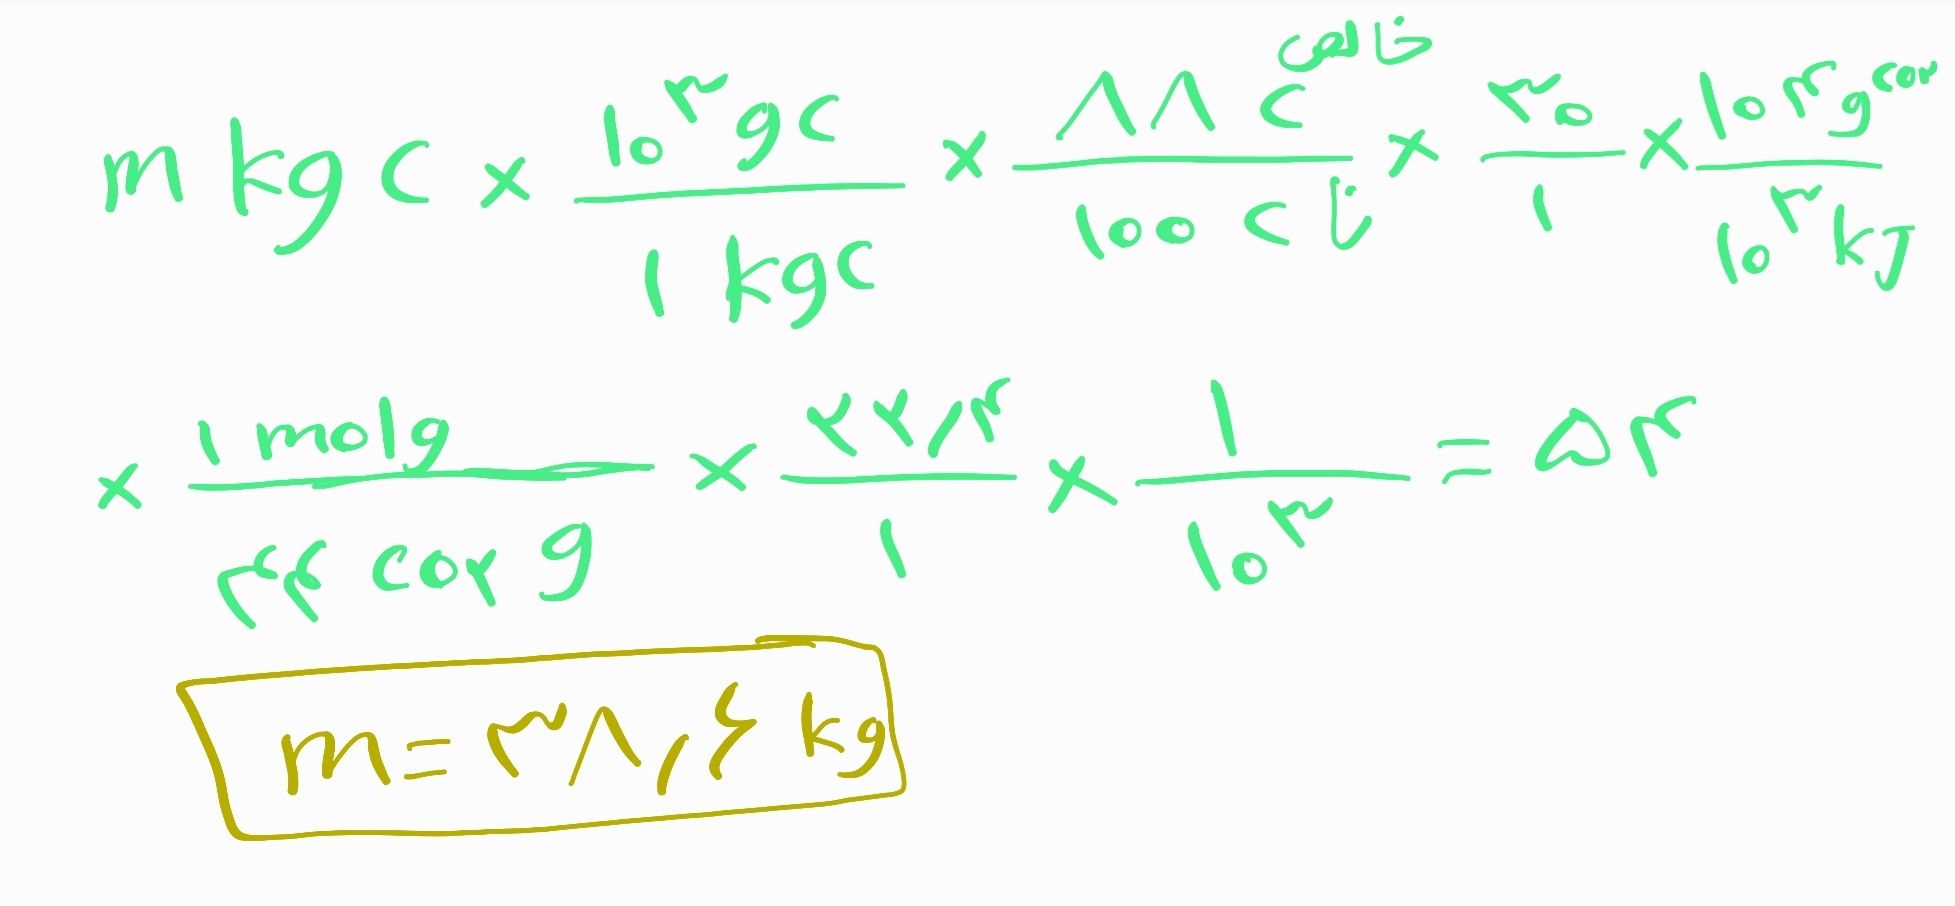 m kg C × ۱۰^۳ g C / ۱ kg C × ۸۸ C خالص / ۱۰۰ C نا × ۳۰ / ۱ × ۱۰۴ g CO۲ / ۱۰^۳ kJ
× ۱ mol g / ۴۴ CO۲ g × ۲۲٫۴ / ۱ × ۱ / ۱۰^۳ = ۵۴
m = ۳۸٫۴ kg